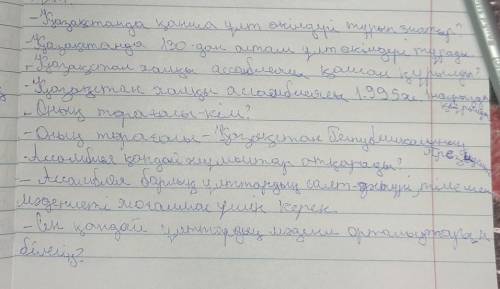 - Қазақстанда қанша ұлт өкілдері тұрып жатыр?
- Қазақстанда 130-дан астам ұлт өкілдері тұрады
- Қазақстан халқы ассамблеясы қашан құрылды?
- Қазақстан халқы ассамблеясы 1995ж наурызда құрылды
- Оның төрағасы кім?
- Оның төрағасы - Қазақстан Республикасының Президенті
- Ассамблея қандай жұмыстар атқарады?
- Ассамблея барлық ұлттардың салт-дәстүрі, тілі мен
мәдениеті жоғалмас үшін керек.
- Сен қандай ұлттардың мәдени орталықтарын
білесің?